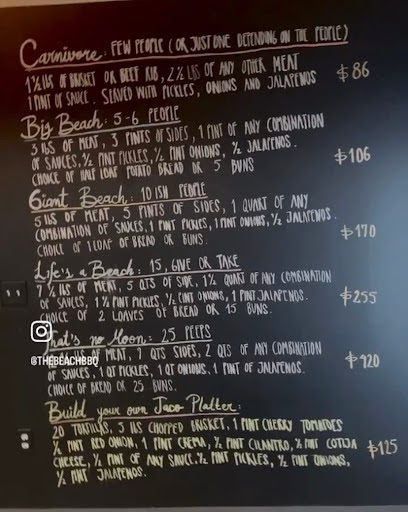 Carnivore: FEW PEOPLE (OR JUST ONE DEPENDING ON THE PEOPLE)
1½ LBS OF BRISKET OR BEEF RIB, 2½ LBS OF ANY OTHER MEAT
1 PINT OF SAUCE. SERVED WITH PICKLES, ONIONS AND JALAPENOS $86
Big Beach: 5-6 PEOPLE
3 LBS OF MEAT, 3 PINTS OF SIDES, 1 PINT OF ANY COMBINATION
OF SAUCES, ½ PINT PICKLES, ½ PINT ONIONS, ½ JALAPENOS.
CHOICE OF HALF LOAF POTATO BREAD OR 5 BUNS $106
Giant Beach: 10ISH PEOPLE
5 LBS OF MEAT, 5 PINTS OF SIDES, 1 QUART OF ANY
COMBINATION OF SAUCES, 1 PINT PICKLES, 1 PINT ONIONS, ½ JALAPENOS.
CHOICE OF 1 LOAF OF BREAD OR BUNS. $170
Life's a Beach: 15, GIVE OR TAKE
7 ½ LBS OF MEAT, 5 QTS OF SIDE, 1½ QUART OF ANY COMBINATION
OF SAUCES, 1½ PINT PICKLES, ONIONS, 1 PINT JALAPENOS.
CHOICE OF 2 LOAVES OF BREAD OR 15 BUNS. $255
That's no Moon: 25 PEEPS
LBS OF MEAT, 7 QTS SIDES, 2 QTS OF ANY COMBINATION
OF SAUCES, 1 QT PICKLES, 1 QT ONIONS, 1 PINT OF JALAPENOS.
CHOICE OF BREAD OR 25 BUNS. $420
@THEBEACHBBQ
Build your own Taco Platter:
20 TORTILLAS, 5 LBS CHOPPED BRISKET, 1 PINT CHERRY TOMATOES
½ PINT RED ONION, 1 PINT CREMA, ½ PINT CILANTRO, ½ PINT COTIJA
CHEESE, ½ PINT OF ANY SAUCE, ½ PINT PICKLES, ½ PINT ONIONS,
½ PINT JALAPENOS. $125